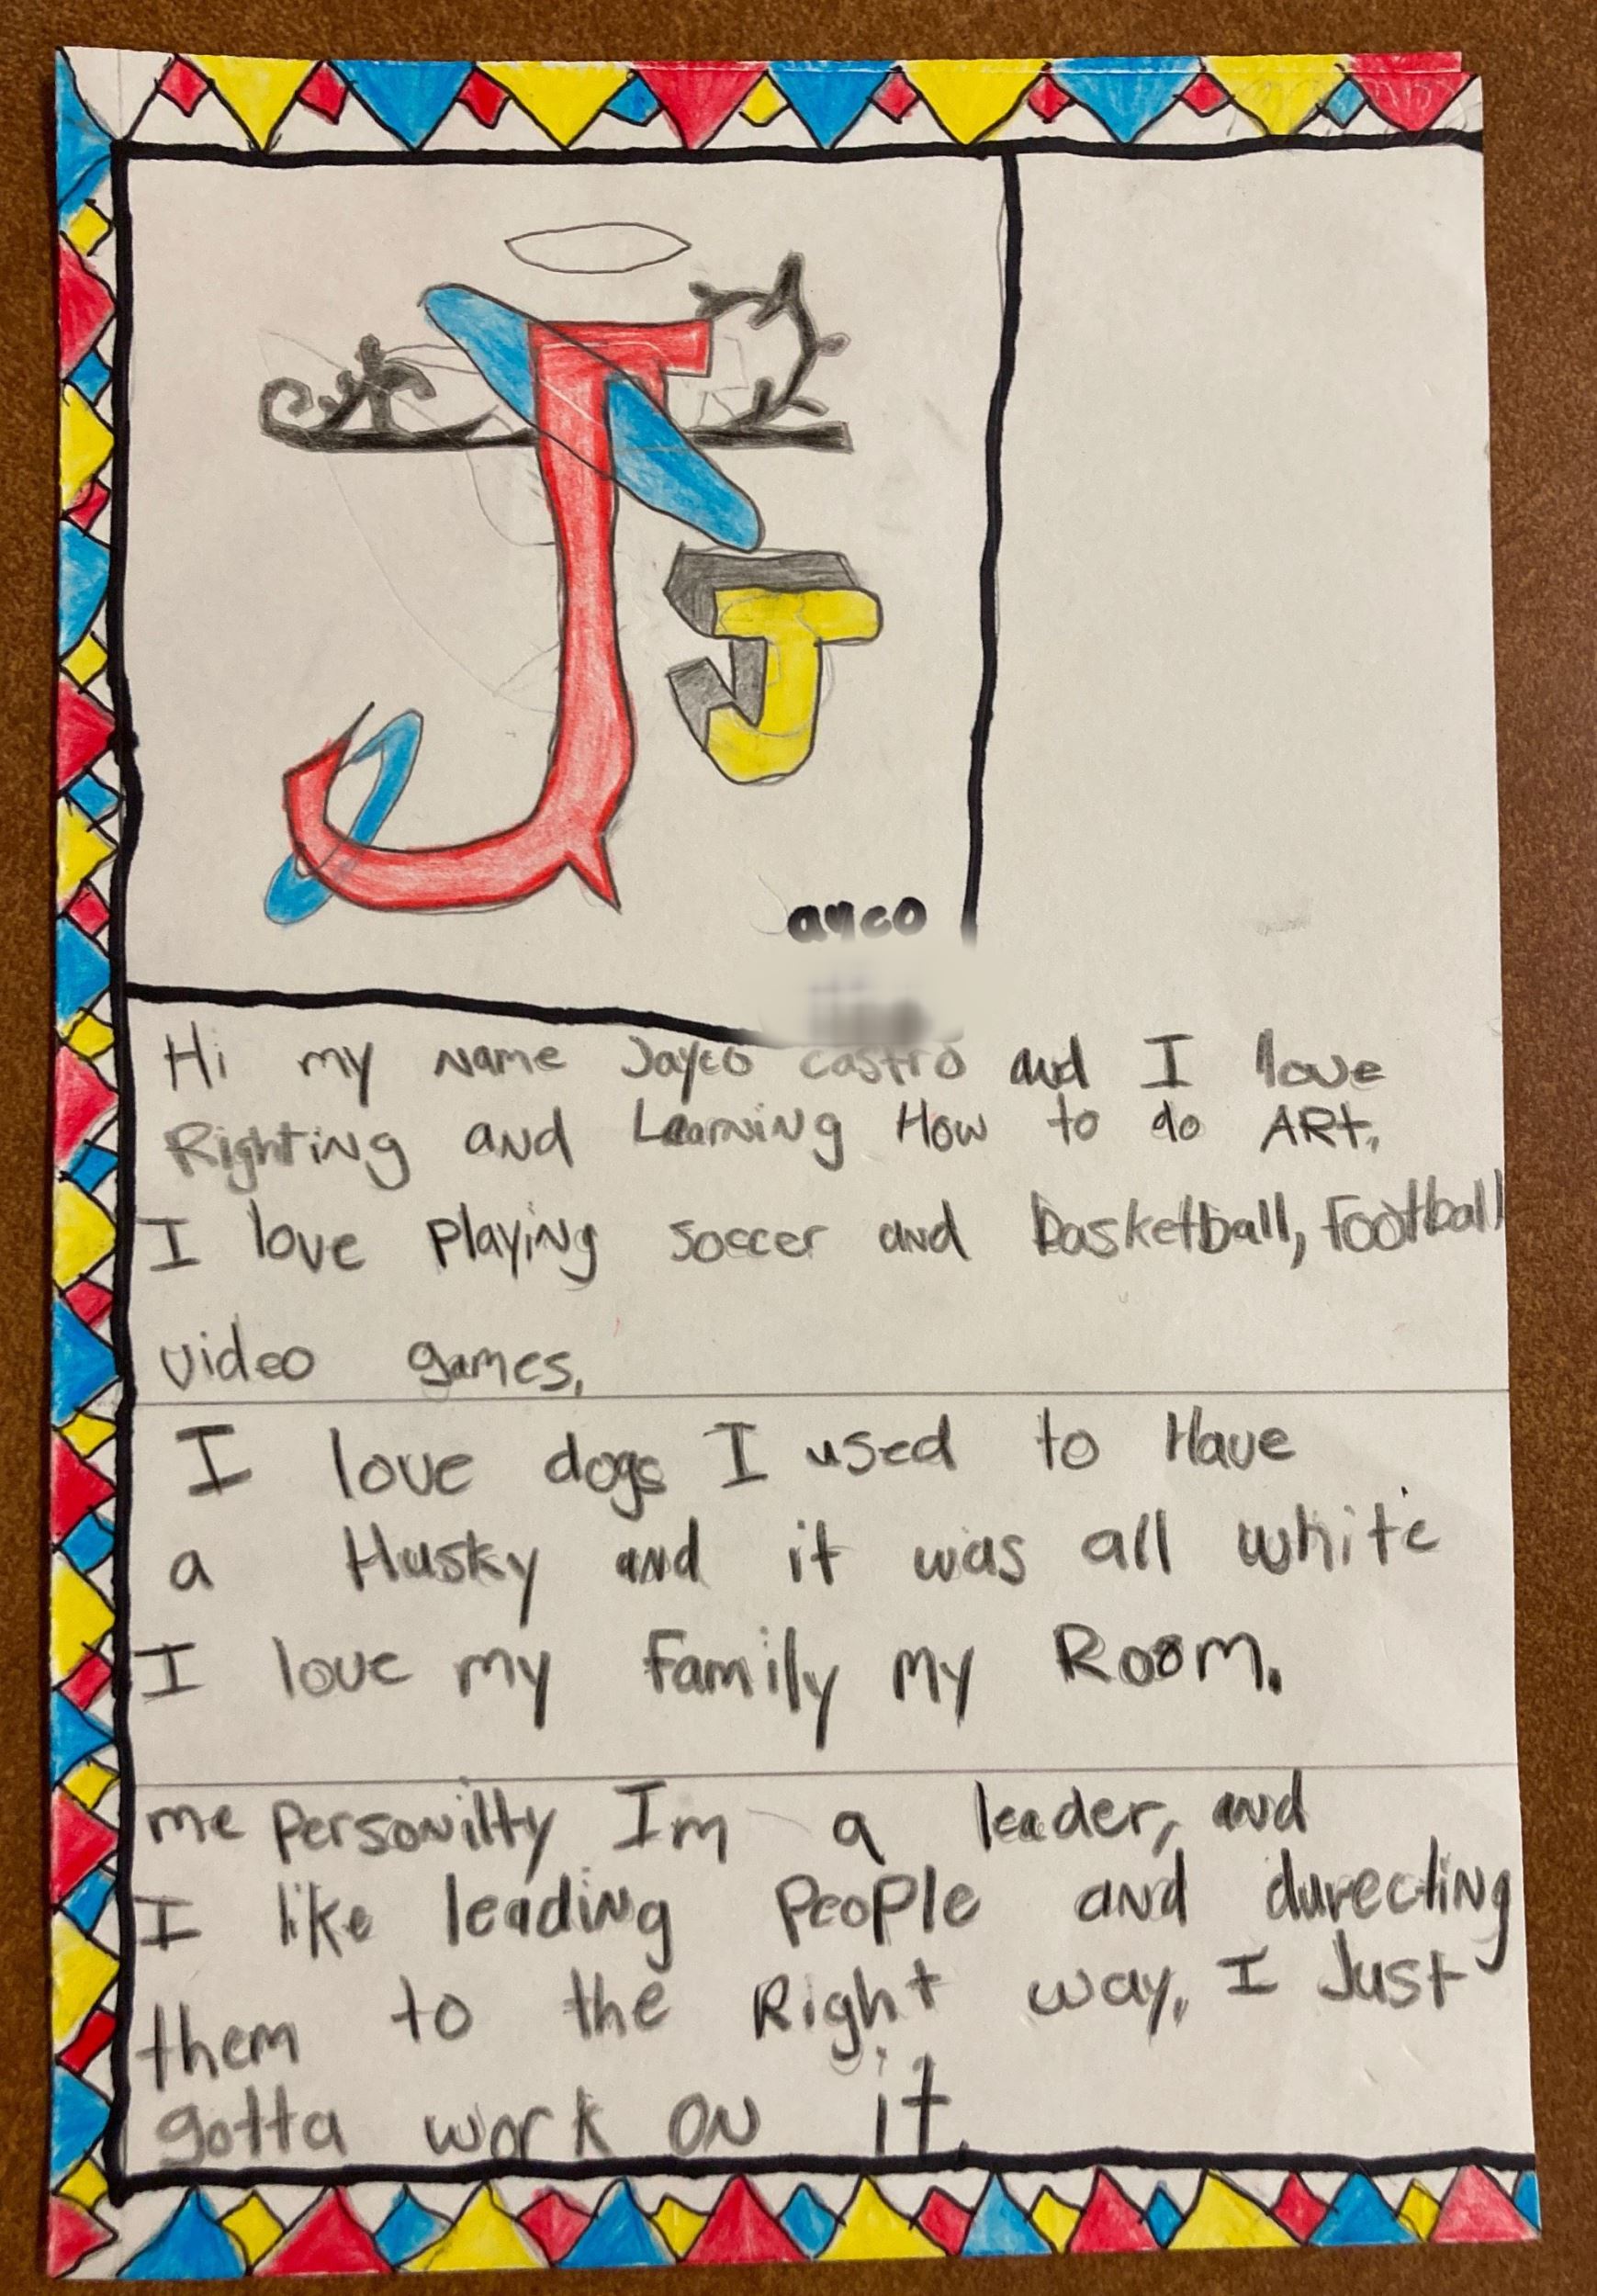 J
J
ayco
Hi my name Jayco castro and I love
Righting and Learning How to do ARt.
I love playing soccer and basketball, football
video games.
I love dogs I used to Have
a Husky and it was all white
I love my family my Room.
me personilty Im a leader, and
I like leading people and durecting
them to the Right way. I Just
gotta work on it.